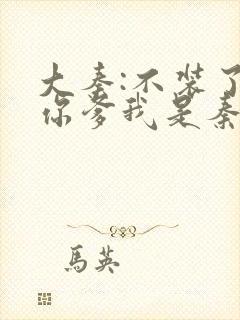 大秦:不装了
你爹我是秦
馬英